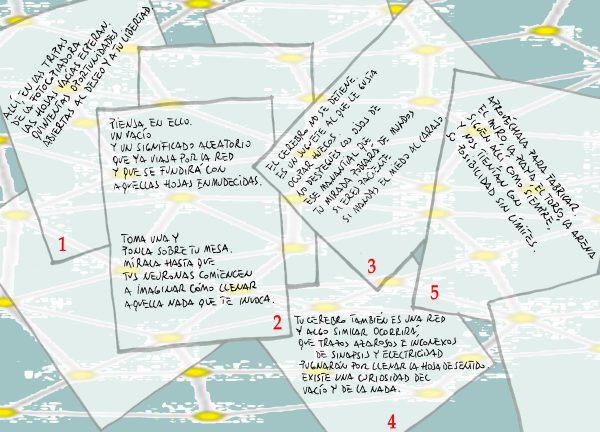 ALLÍ EN LAS TRIPAS
DE LA FOTOCOPIADORA
LAS HOJAS VACÍAS ESPERAN.
QUINIENTAS OPORTUNIDADES
ABIERTAS AL DESEO Y A TU LIBERTAD
1
PIENSA EN ELLO.
UN VACÍO
Y UN SIGNIFICADO ALEATORIO
QUE YA VIAJA POR LA RED
Y QUE SE FUNDIRÁ CON
AQUELLAS HOJAS ENMUDECIDAS.
TOMA UNA Y
PONLA SOBRE TU MESA.
MÍRALA HASTA QUE
TUS NEURONAS COMIENCEN
A IMAGINAR CÓMO LLENAR
AQUELLA NADA QUE TE INVOCA.
2
EL CEREBRO NO SE DETIENE.
ES UN JUGUETE AL QUE LE GUSTA
OCUPAR HUECOS.
NO DESPEGUES LOS OJOS DE
ESE MANANTIAL QUE
TU MIRADA POBLARÁ DE MUNDOS
SI ERES PACIENTE
SI MANDAS EL MIEDO AL CARAJO
3
TU CEREBRO TAMBIÉN ES UNA RED
Y ALGO SIMILAR OCURRIRÁ,
QUE TRAZOS AZAROSOS E INCONEXOS
DE SINAPSIS Y ELECTRICIDAD
PUGNARÁN POR LLENAR LA HOJA DE SENTIDO.
EXISTE UNA CURIOSIDAD DEL
VACÍO Y DE LA NADA.
4
APROVÉCHALA PARA FABRICAR.
EL MURO, LA PLAYA, EL TORSO, LA ARENA
SIGUEN ALLÍ COMO SIEMPRE,
Y NOS TIENTAN CON SU
POSIBILIDAD SIN LÍMITES.
5